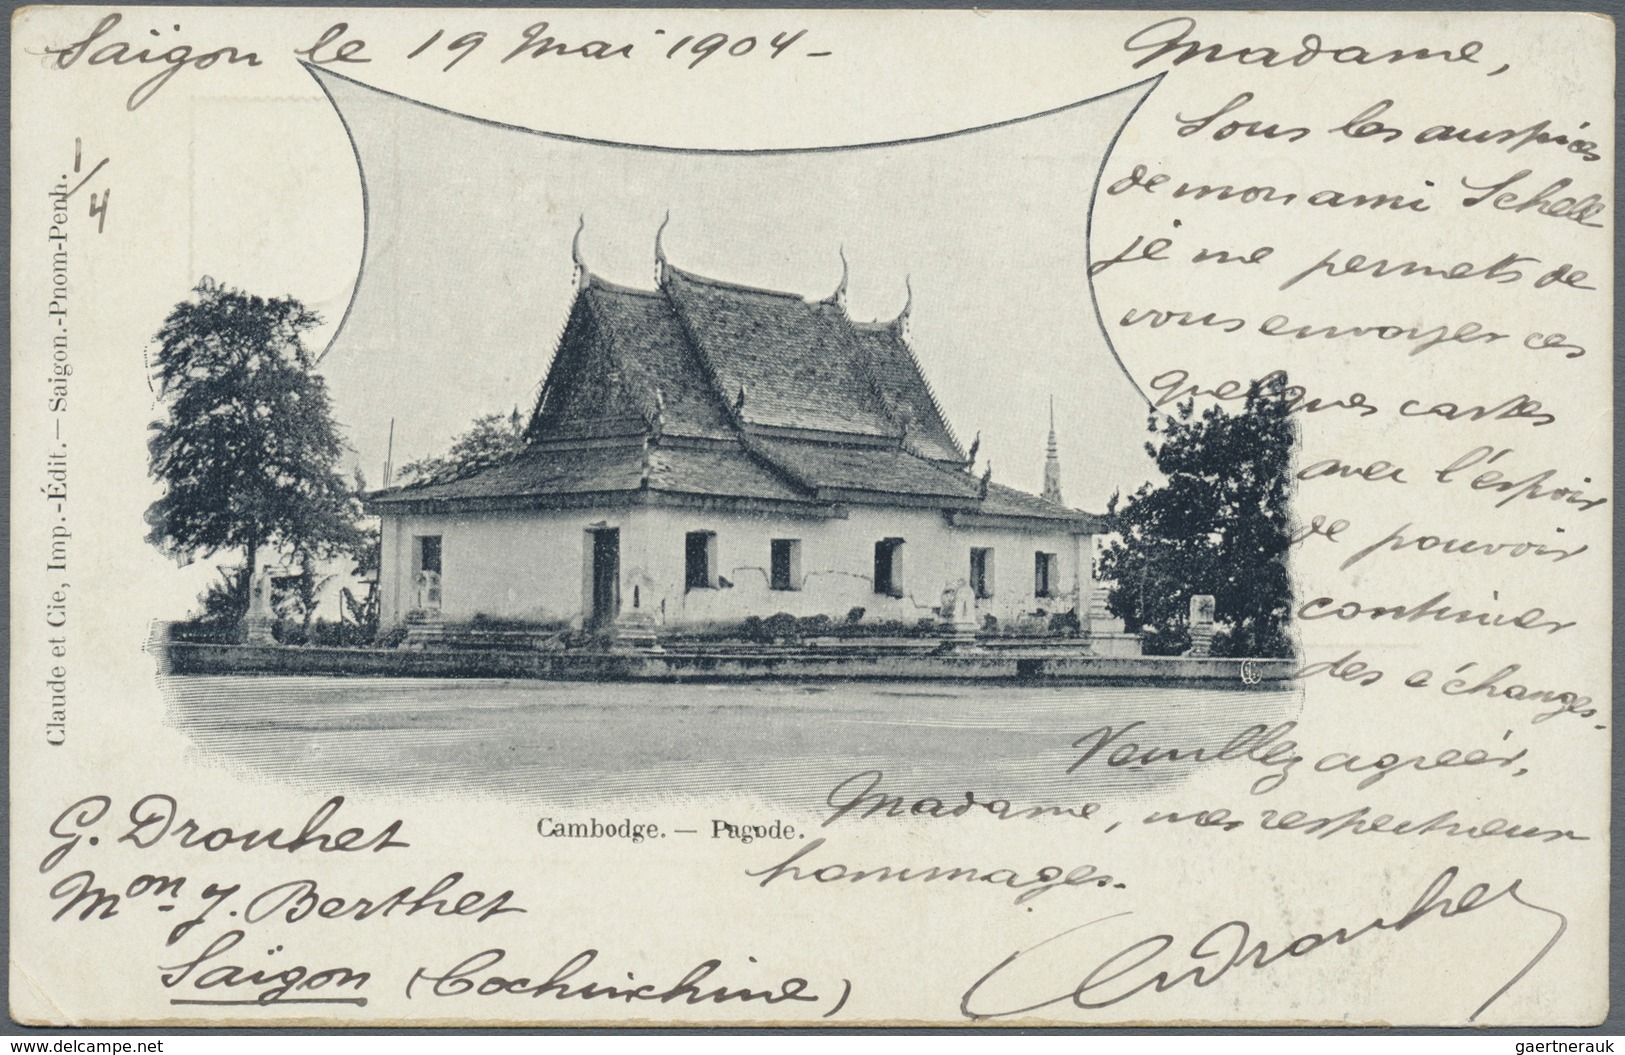 Saïgon le 19 Mai 1904 -
1/4
Claude et Cie, Imp.-Édit. — Saigon.-Pnom-Penh.
Madame,
Sous les auspices
de mon ami Schell
je me permets de
vous envoyer ces
quelques cartes
avec l'espoir
de pouvoir
continuer
des échanges.
Veuillez agréer,
Madame, mes respectueux
hommages.
Cambodge. — Pagode.
G. Drouhet
Mon J. Berthet
Saïgon (Cochinchine)
GDrouhet
www.delcampe.net
gaertnerauk